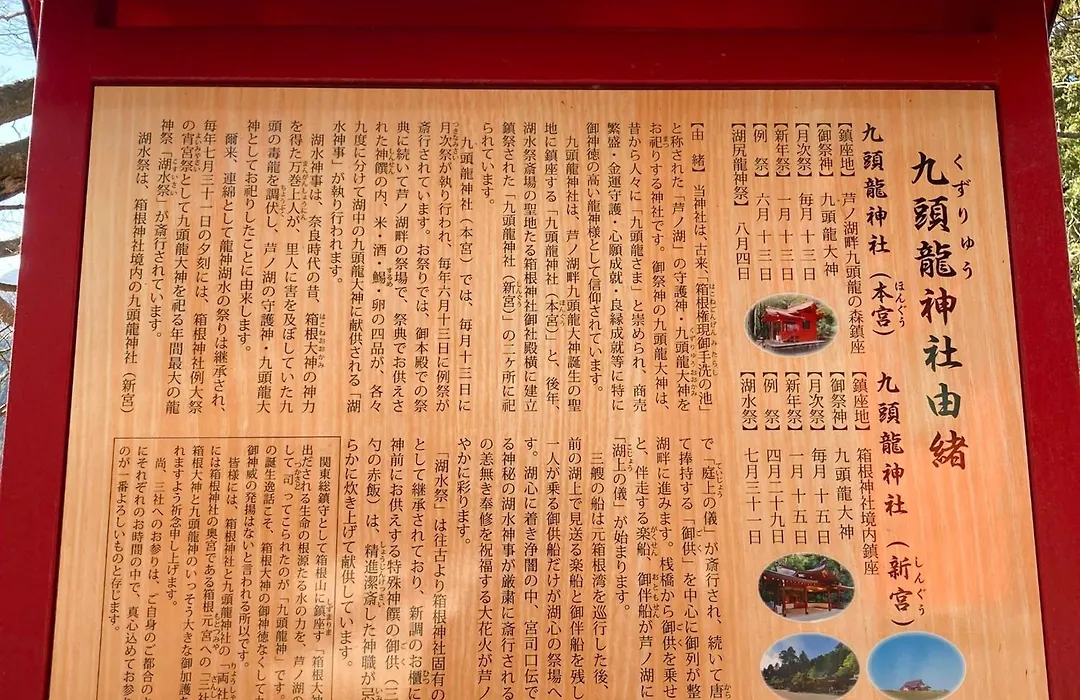 九頭龍神社由緒
くずりゅう
九頭龍神社（本宮）
ほんぐう
【鎮座地】 芦ノ湖畔九頭龍の森鎮座
【御祭神】 九頭龍大神
【月次祭】 毎月 十三日
【新年祭】 一月 十三日
【例　祭】 六月 十三日
【湖尻龍神祭】 八月四日
九頭龍神社（新宮）
しんぐう
【鎮座地】 箱根神社境内鎮座
【御祭神】 九頭龍大神
【月次祭】 毎月 十五日
【新年祭】 一月 十五日
【例　祭】 四月二十九日
【湖水祭】 七月三十一日
【由　緒】 当神社は、古来、箱根権現御手洗の池」
と称された「芦ノ湖」の守護神・九頭龍大神を
お祀りする神社です。御祭神の九頭龍大神は、
昔から人々に「九頭龍さま」と崇められ、商売
繁盛・金運守護・心願成就・良縁成就等に特に
御神徳の高い龍神様として信仰されています。
九頭龍神社は、芦ノ湖畔九頭龍大神誕生の聖
地に鎮座する「九頭龍神社（本宮）」と、後年、
湖水祭斎場の聖地たる箱根神社御社殿横に建立
鎮祭された「九頭龍神社（新宮）」の二ヶ所に祀
られています。
九頭龍神社（本宮）では、毎月十三日に
月次祭が執り行われ、毎年六月十三日に例祭が
斎行されています。お祭りでは、御本殿での祭
典に続いて芦ノ湖畔の祭場で、祭典でお供えさ
れた神饌の内、米・酒・鯣・卵の四品が、各々
九度に分けて湖中の九頭龍大神に献供される「湖
水神事」が執り行われます。
湖水神事は、奈良時代の昔、箱根大神の神力
を得た万巻上人が、里人に害を及ぼしていた九
頭の毒龍を調伏し、芦ノ湖の守護神・九頭龍大
神としてお祀りしたことに由来します。
爾来、連綿として龍神湖水の祭りは継承され、
毎年七月三十一日の夕刻には、箱根神社例大祭
の宵宮祭として九頭龍大神を祀る年間最大の龍
神祭「湖水祭」が斎行されています。
湖水祭は、箱根神社境内の九頭龍神社（新宮）
で「庭上の儀」が斎行され、続いて唐
て捧持する「御供」を中心に御列が整
湖畔に進みます。桟橋から御供を乗せ
と、伴走する楽船、御伴船が芦ノ湖に
「湖上の儀」が始まります。
三艘の船は元箱根湾を巡行した後、
前の湖上で見送る楽船と御伴船を残し
一人が乗る御供船だけが湖心の祭場へ
す。湖心に着き浄闇の中、宮司口伝で
る神秘の湖水神事が厳粛に斎行される
の恙無き奉修を祝福する大花火が芦ノ
やかに彩ります。
「湖水祭」は往古より箱根神社固有の
として継承されており、新調のお櫃に
神前にお供えする特殊神饌の御供（三
勺の赤飯）は、精進潔斎した神職が忌
らかに炊き上げて献供しています。
関東総鎮守として箱根山に鎮座す「箱根大神
出だされる生命の根源たる水の力を、芦ノ湖の
して司ってこられたのが「九頭龍神」です。
の誕生逸話こそ、箱根大神の御神徳なくして
御神威の発揚はないと言われる所以です。
皆様には、箱根神社と九頭龍神社の「両社
には箱根神社の奥宮である箱根元宮への「三社
箱根大神と九頭龍神のいっそう大きな御加護を
れますよう祈念申し上げます。
尚、三社へのお参りは、ご自身のご都合の
にそれぞれのお時間の中で、真心込めてお参
のが一番よろしいものと存じます。